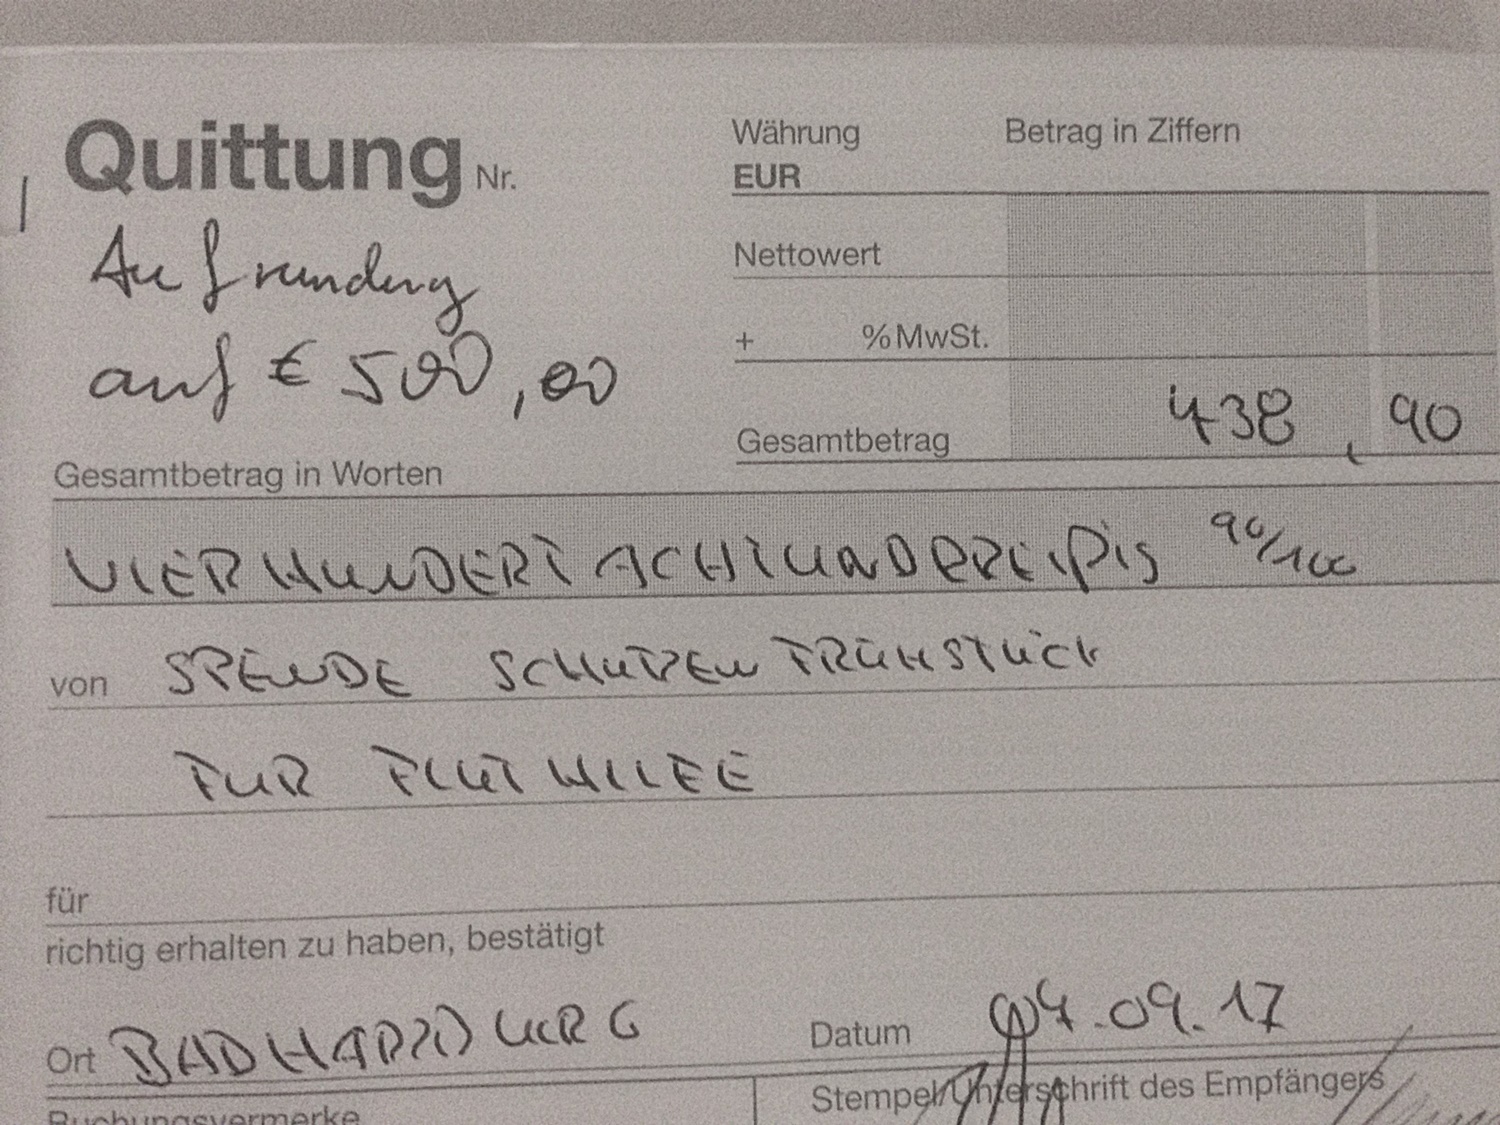 Quittung Nr.
Aufrundung
auf € 500,00
Währung
EUR
Betrag in Ziffern
Nettowert
+ % MwSt.
Gesamtbetrag 438,90
Gesamtbetrag in Worten
VIERHUNDERTACHTUNDDREIßIG 90/100
von SPENDE SCHÜTZENFRÜHSTÜCK
FÜR FLUTHILFE
für
richtig erhalten zu haben, bestätigt
Ort BAD HARZBURG
Datum 04.09.17
Buchungsvermerke
Stempel/Unterschrift des Empfängers